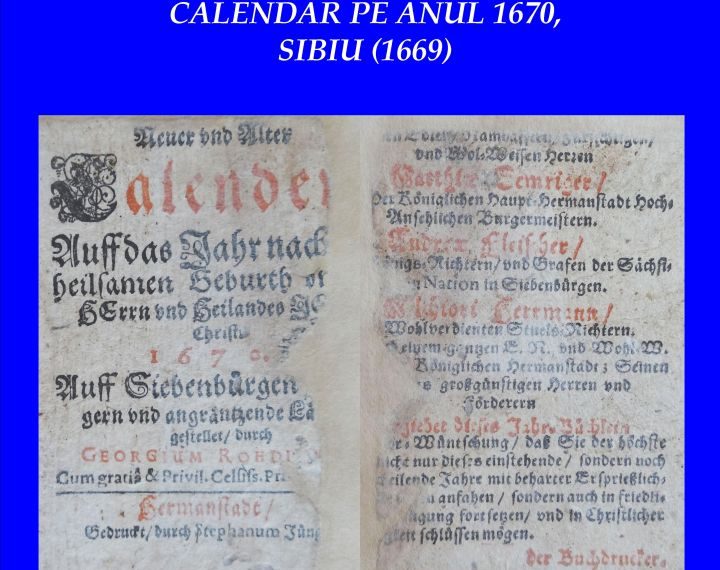 CALENDAR PE ANUL 1670,
SIBIU (1669)
Neuer vnd Alter
Calender
Auff das Jahr nach
heilsamen Geburth
HErrn vnd Heilandes
Christi
1670.
Auff Siebenbürgen
gern vnd angräntzende
gestellet/ durch
GEORGIUM
Cum gratiâ & Privil. Celsiss.
Hermanstadt/
Gedruckt/ durch Stephanum Jüng
Namhafften/ Fürsichtigen/
vnd Wol-Weisen Herren
Semriger/
Der Königlichen Haupt-Hermanstadt Hoch-
Ansehlichen Burgermeistern.
Fleischer/
Richtern/ vnd Grafen der Sächsi-
Nation in Siebenbürgen.
Herrmann/
Wohlverdienten Stuels-Richtern.
gantzen E. R. vnd Wohl-W.
Königlichen Hermanstadt; Seinen
großgünstigen Herren vnd
Förderern
dieses Jahr-Büchlein
Wüntschung/ daß Sie der höchste
nur dieses einstehende/ sondern noch
Jahre mit beharter Ersprießlich-
anfahen/ sondern auch in friedli-
fortsetzen/ vnd in Christlicher
schlüssen mögen.
der Buchdrucker.